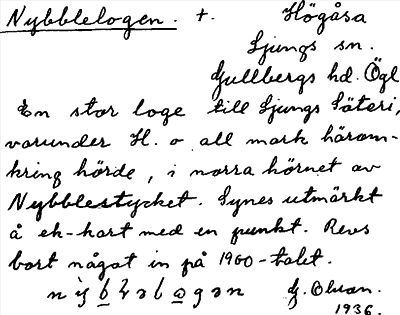 Nybblelogen. +. Högåsa
Ljungs sn.
Gullbergs hd. Ögl
En stor loge till Ljungs Säteri,
varunder H. o all mark häram-
kring hörde, i norra hörnet av
Nybblestycket. Synes utmärkt
å ek-kart med en punkt. Revs
bort något in på 1900-talet.
G. Olson.
1936.